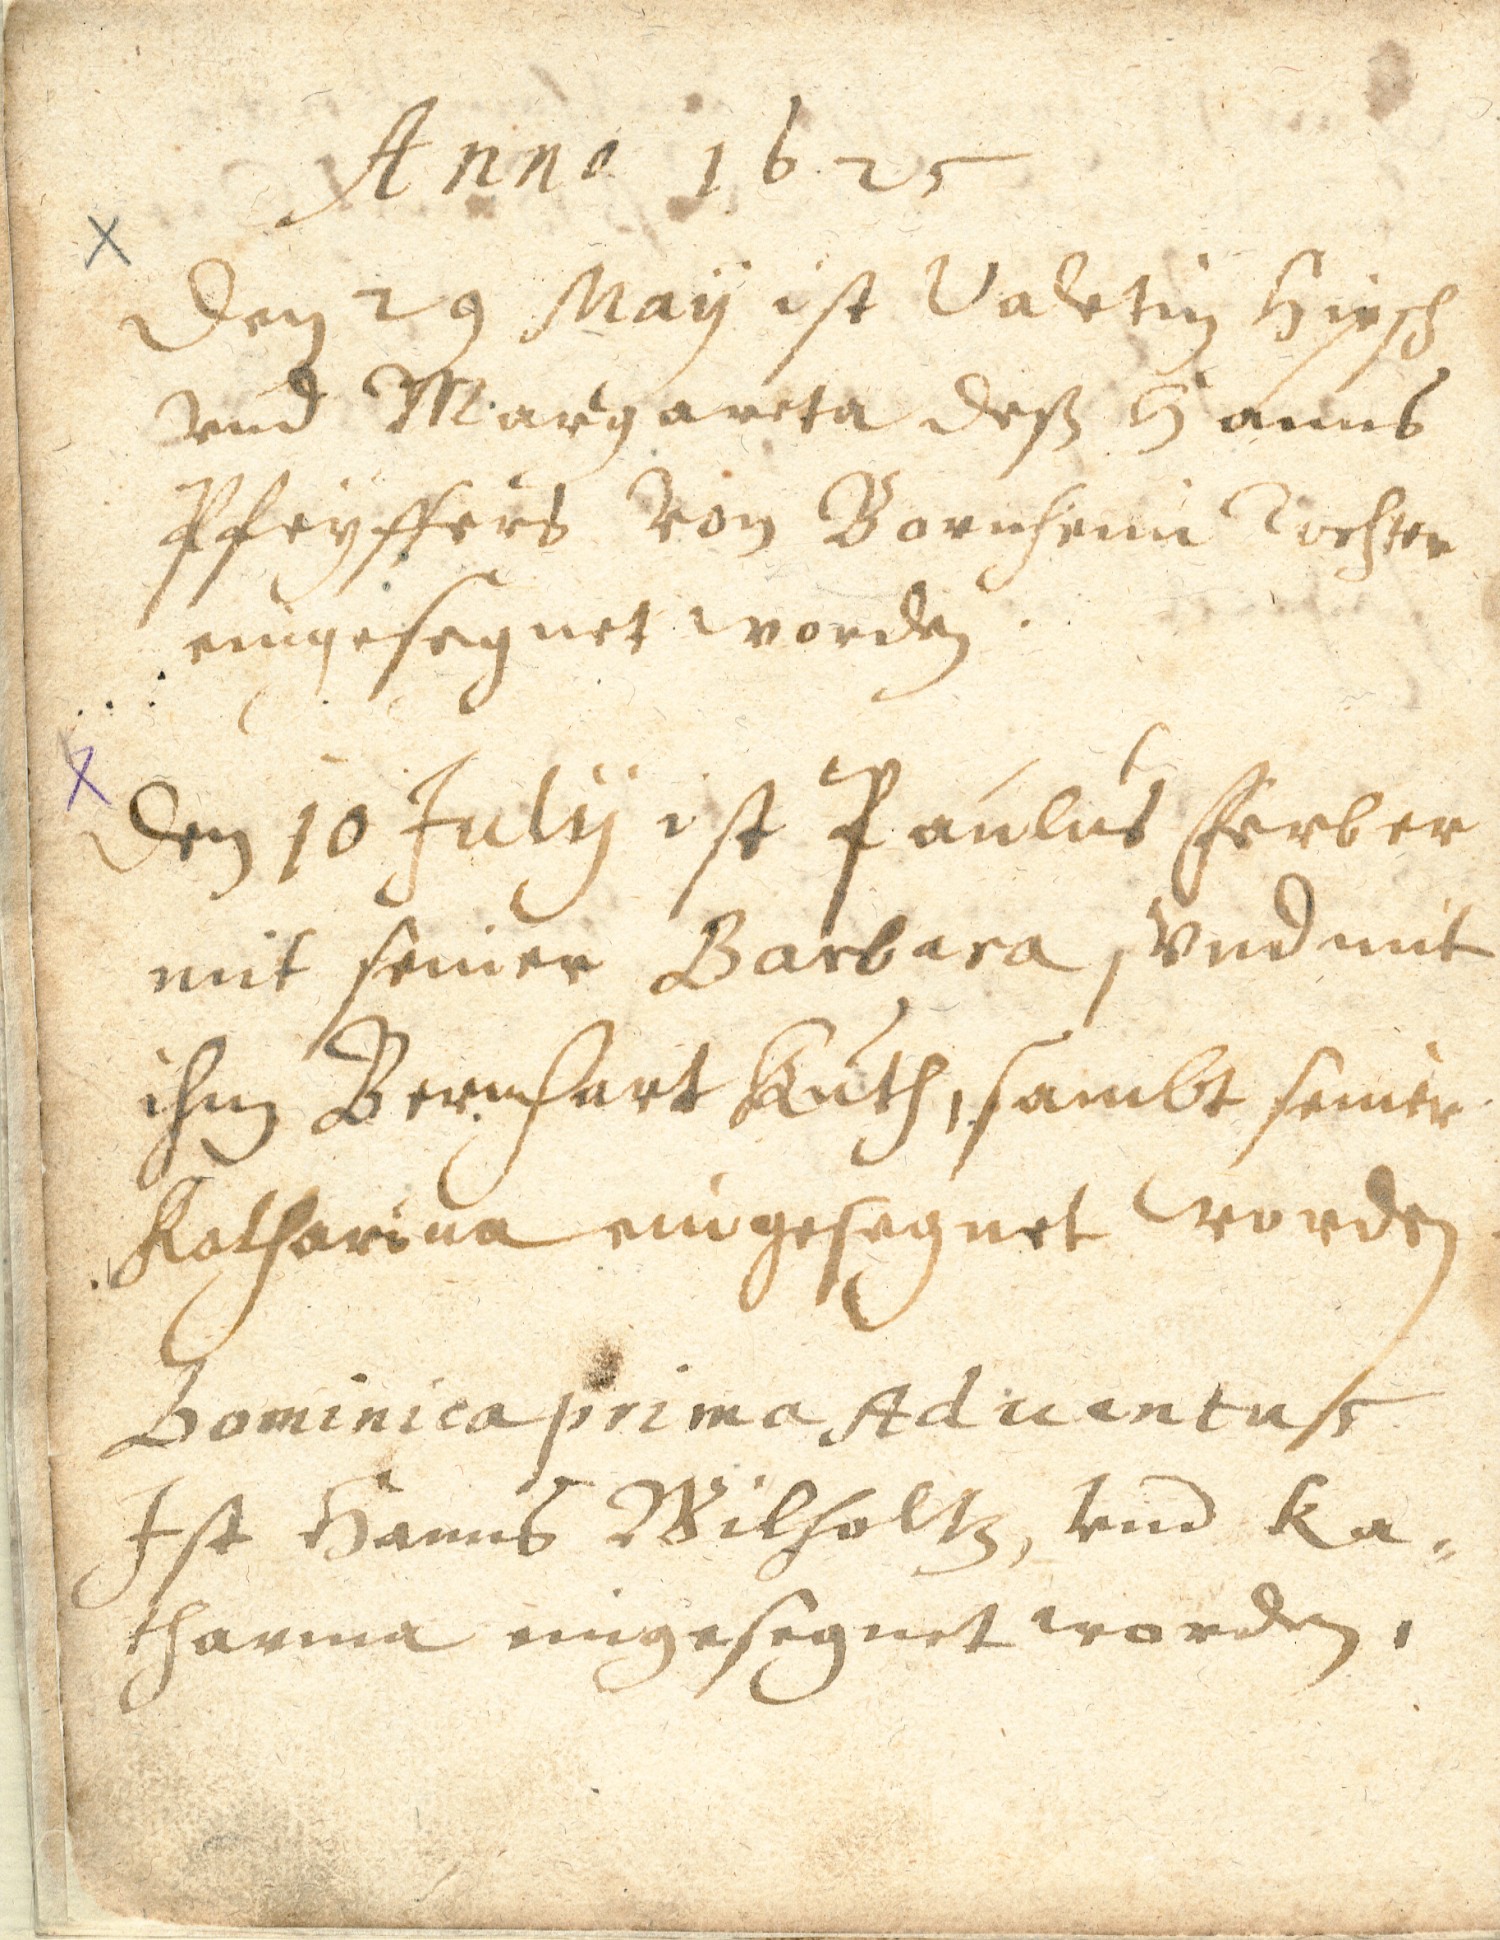 Anno 1625
Den 29 Maij ist Valetin Hirsch
vnd Margareta deß Hanns
Pfeyffers von Bornheim Tochter
eingesegnet worden.
Den 10 Julij ist Paulus Ferber
mit seiner Barbara, vnd mit
ihm Bernhart Kuth, sambt seiner
Katharina eingesegnet worden.
Dominica prima Aduentus
Ist Hanns Wilholtz, vnd Ka=
tharina eingesegnet worden.